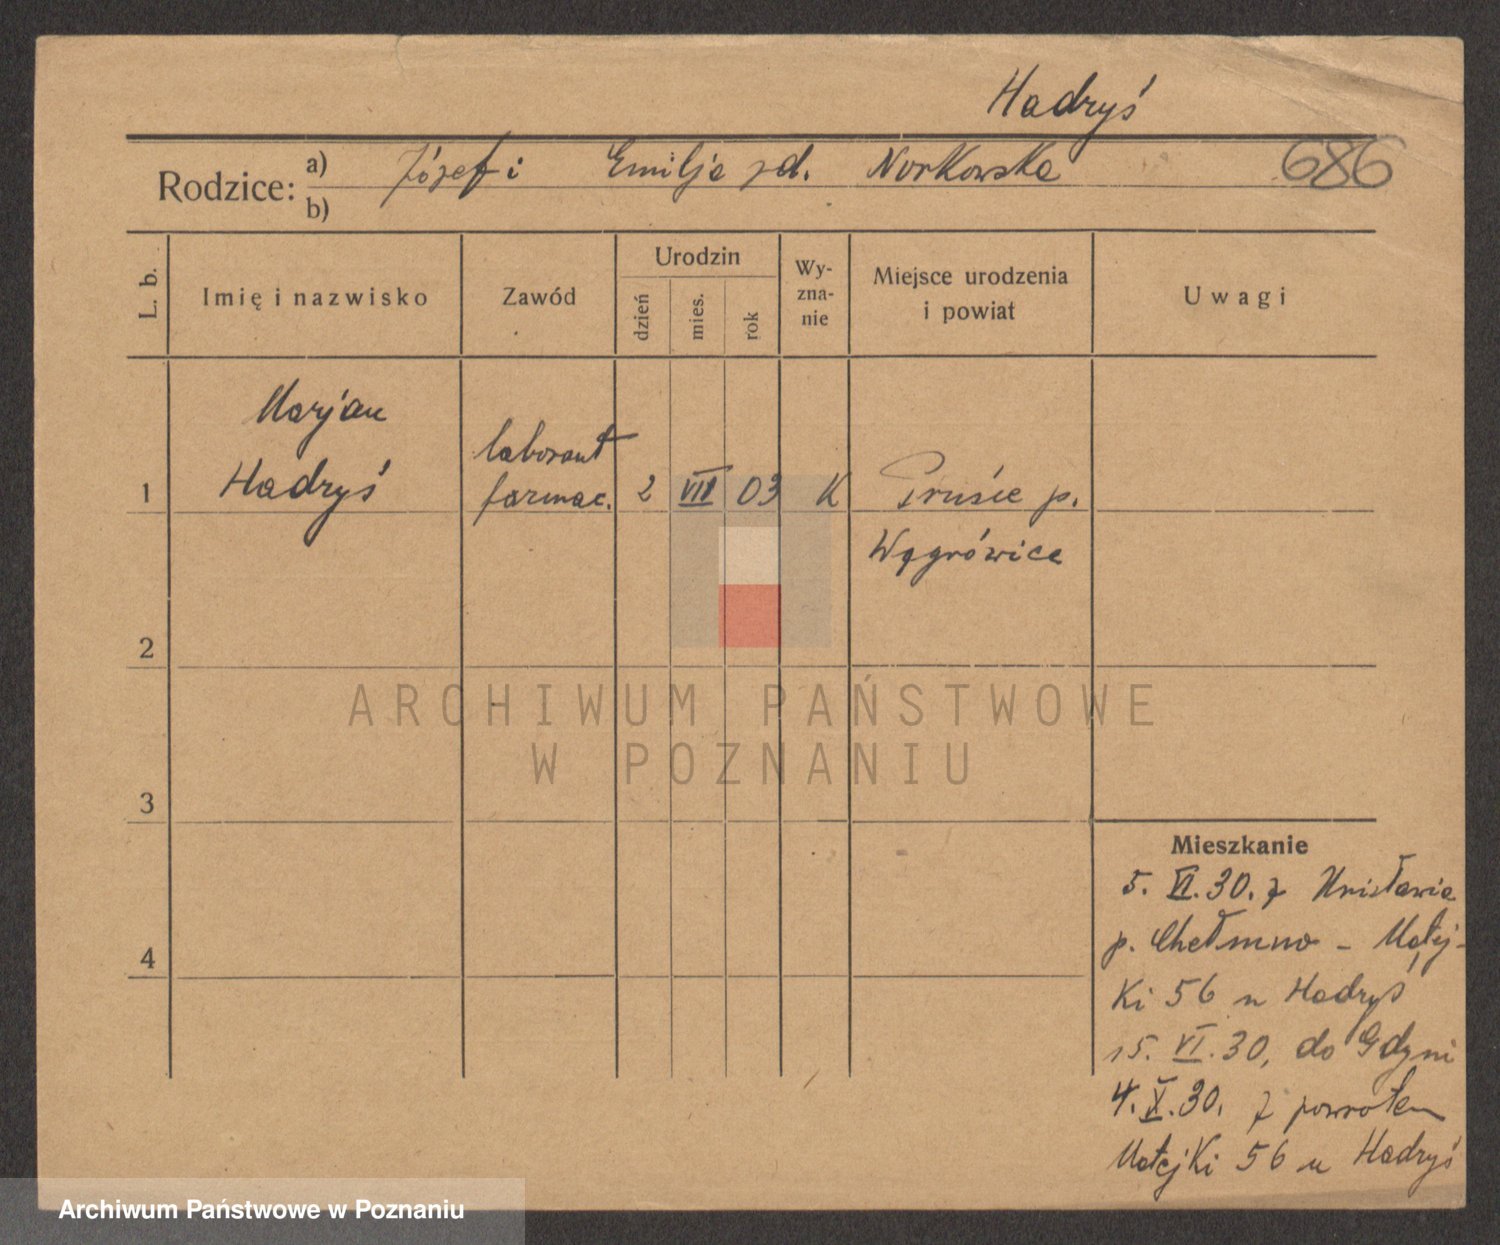 Hadryś
Rodzice: a) Józef i Emilja zd. Norkowska 686
b)
L. b. Imię i nazwisko Zawód Urodzin dzień mies. rok Wy-zna-nie Miejsce urodzenia i powiat Uwagi
Marjan
laborant
1 Hadryś farmac. 2 VIII 03 K Pruśce p.
Wągrówice
2
3
4
Mieszkanie
5. VI. 30. z Unisławia
p. Chełmno - Matej-
ki 56 u Hadryś
15. VI. 30. do Gdyni
4. X. 30. z powrotem
Matejki 56 u Hadryś
ARCHIWUM PAŃSTWOWE
W POZNANIU
Archiwum Państwowe w Poznaniu